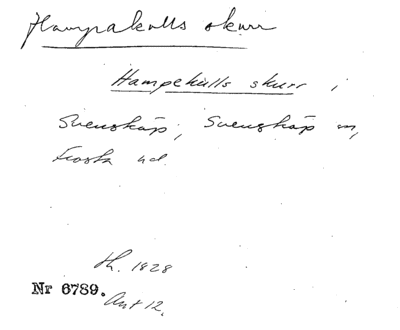 Hampakulls skurr
Hampekulls skurr ;
Svensköp ; Svensköp sn,
Frosta hd.
h. 1828
Nr 6789.
Ant 12.